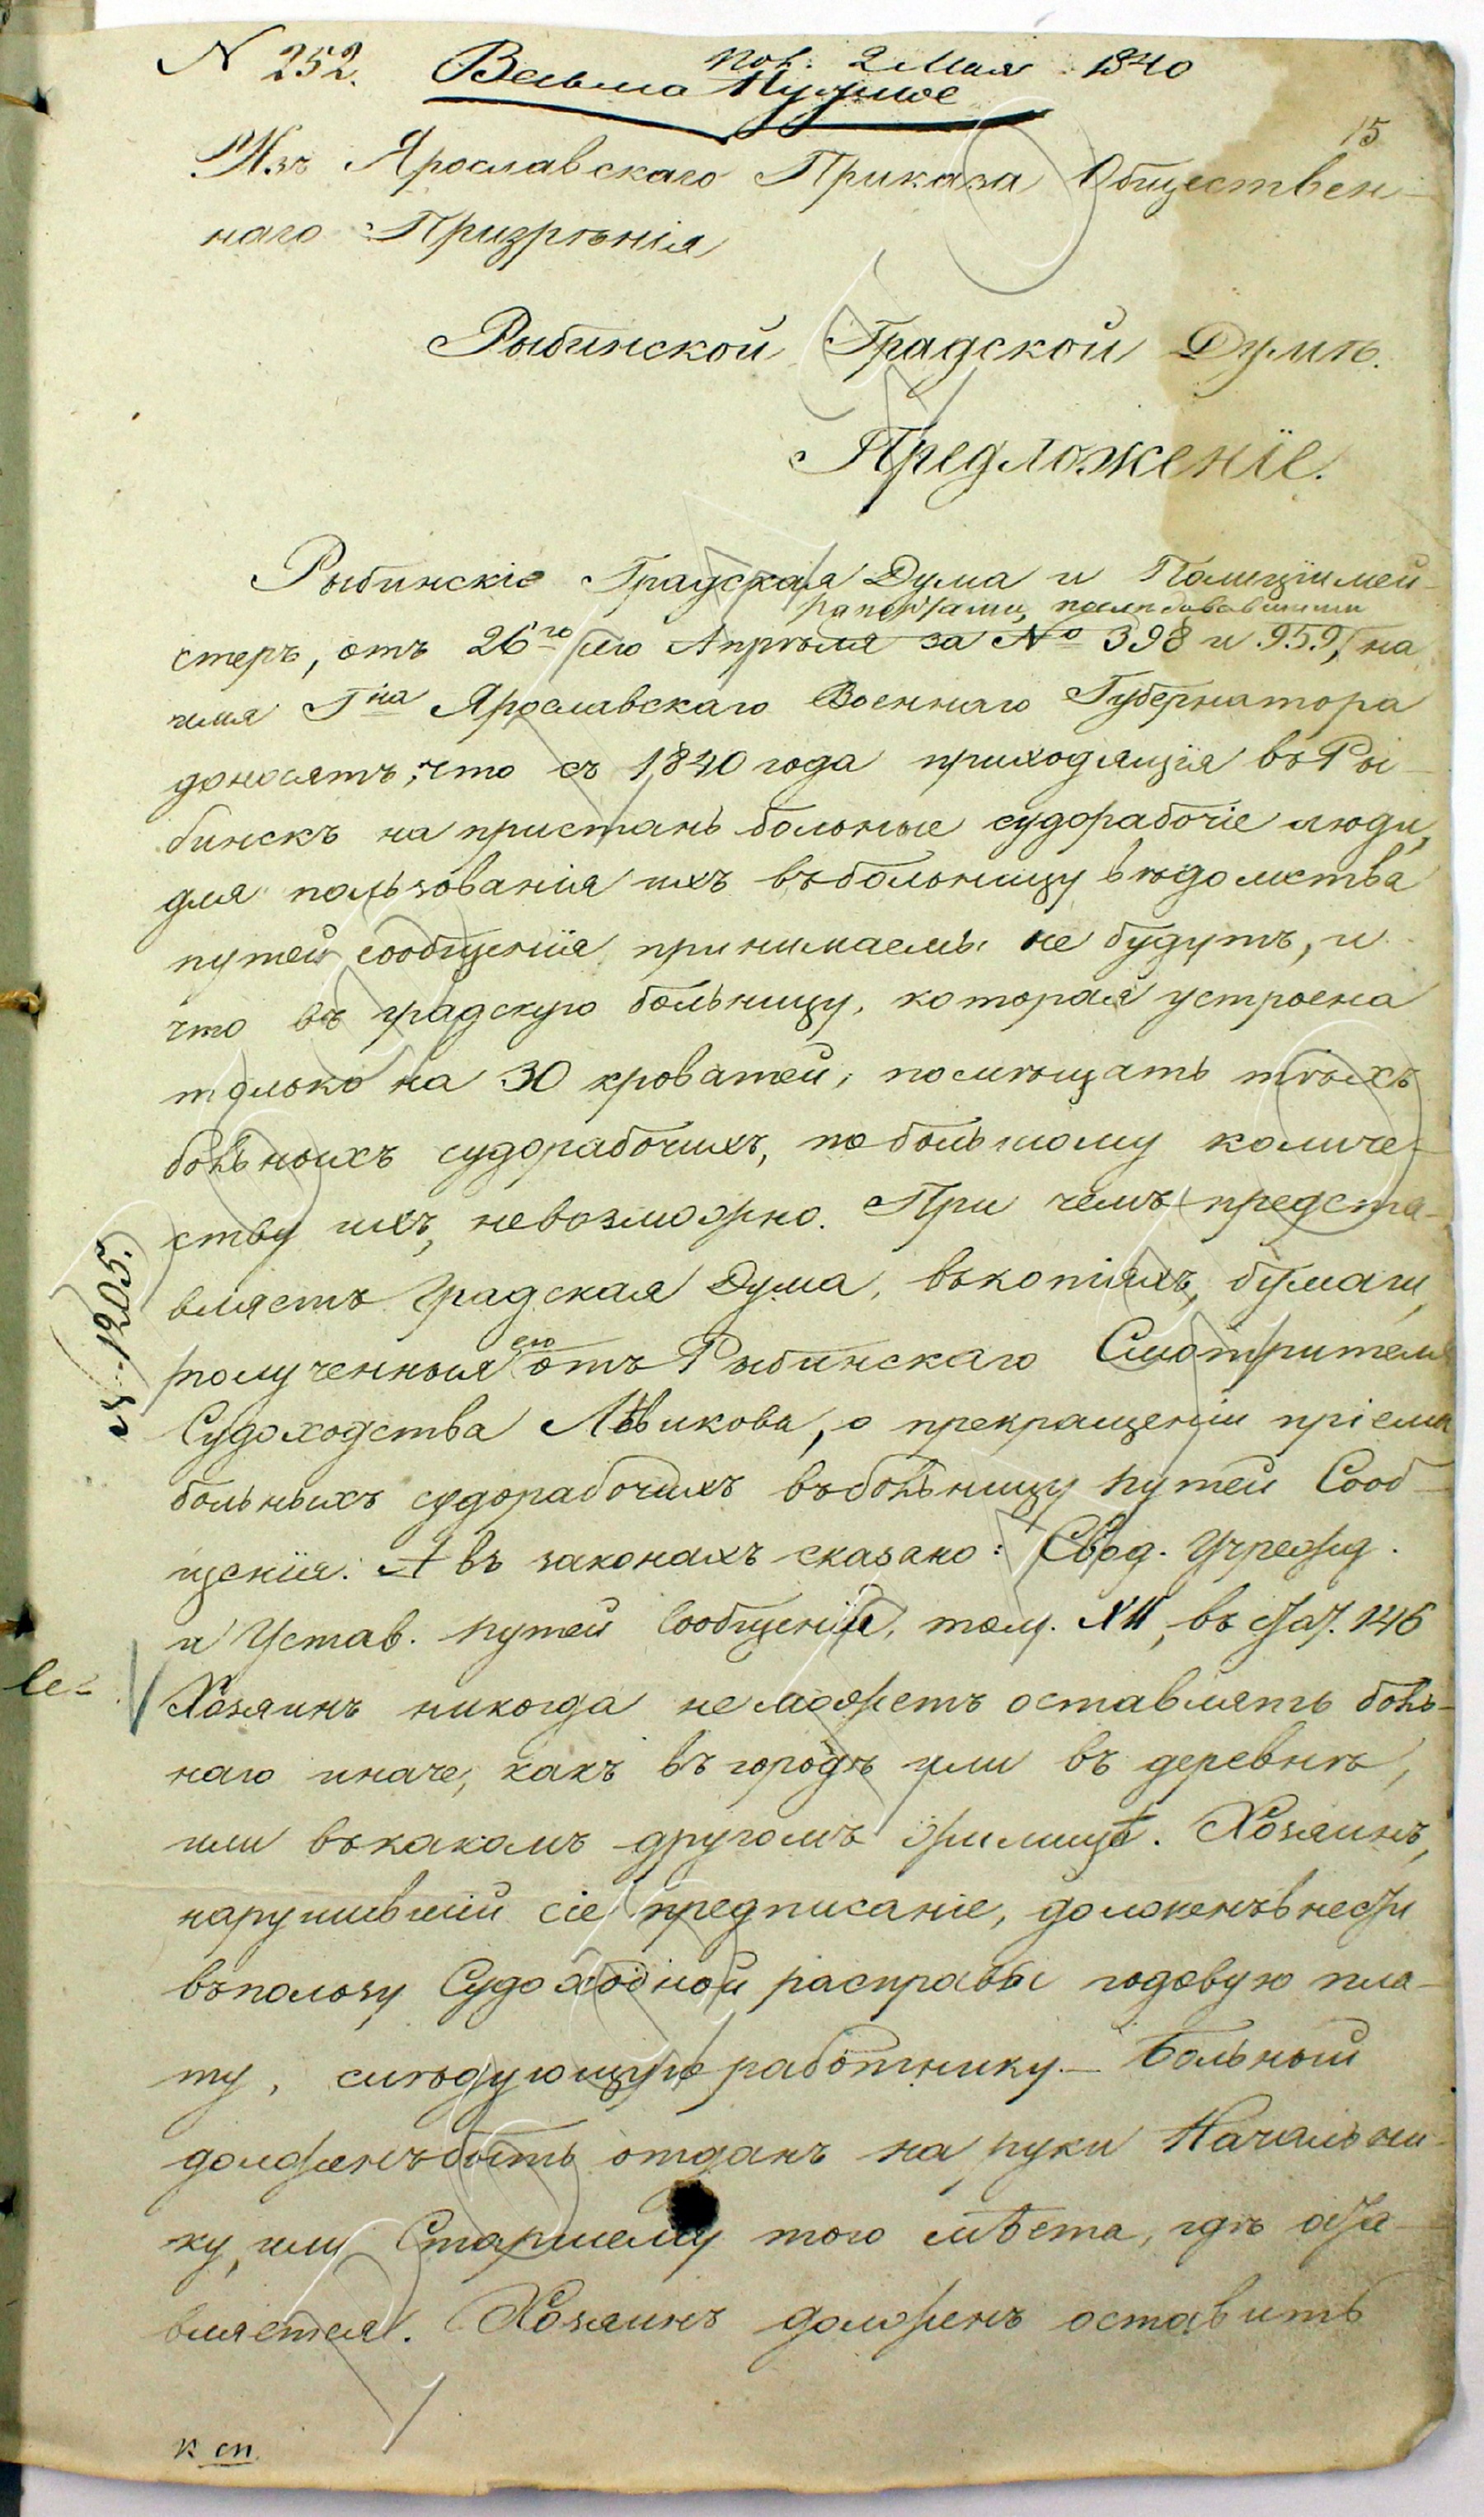 N 252. Весьма Нужное пол. 2 Мая 1840
15
Изъ Ярославскаго Приказа Обществен-
наго Призрѣнія
Рыбинской Градской Думѣ.
Предложеніе.
Рыбинскіе Градская Дума и Полиціймей-
рапортами, послѣдовавшими
стеръ, отъ 26го сего Апрѣля за № 398 и 959, на
имя Гна Ярославскаго Военнаго Губернатора
доносятъ, что съ 1840 года приходящія въ Ры-
бинскъ на пристань больные судорабочіе люди,
для пользованія ихъ въ больницу вѣдомства
путей сообщенія принимаемы не будутъ, и
что въ градскую больницу, которая устроена
только на 30 кроватей, помѣщать тѣхъ
больныхъ судорабочихъ, по большому количе-
ству ихъ, невозможно. При чемъ предста-
вляетъ Градская Дума, въ копіяхъ, бумаги,
полученныя ею отъ Рыбинскаго Смотрителя
Судоходства Львикова, о прекращеніи пріема
больныхъ судорабочихъ въ больницу Путей Сооб-
щенія. А въ законахъ сказано: Свод. Учрежд.
и Устав. Путей Сообщенія, том. XII, въ стат. 146
Хозяинъ никогда не можетъ оставлять боль-
наго иначе, какъ въ городѣ или въ деревнѣ,
или въ какомъ другомъ жилищѣ. Хозяинъ,
нарушившій сіе предписаніе, долженъ внести
въ пользу Судоходной расправы годовую пла-
ту, слѣдующую работнику. – Больный
долженъ быть отданъ на руки Начальни-
ку, или Старшему того мѣста, гдѣ оста-
вляется. Хозяинъ долженъ оставить
1205.
к сп.